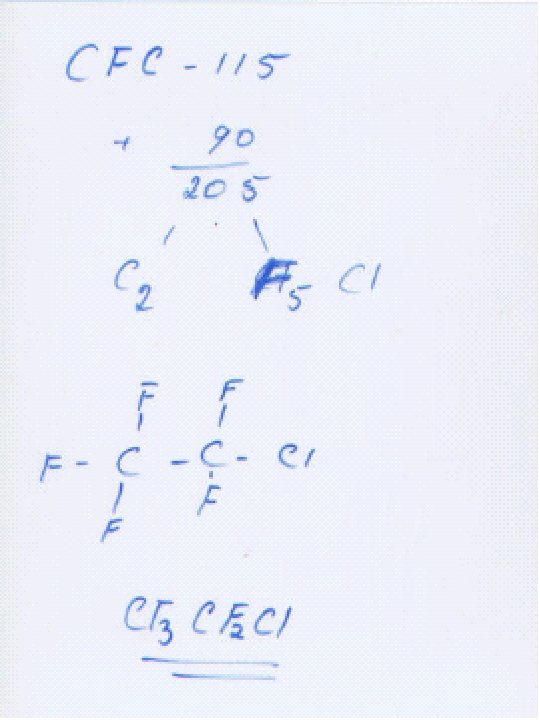 CFC - 115
+ 90
205
C2 F5 Cl
F F
F - C - C - Cl
F F
CF3 CF2Cl